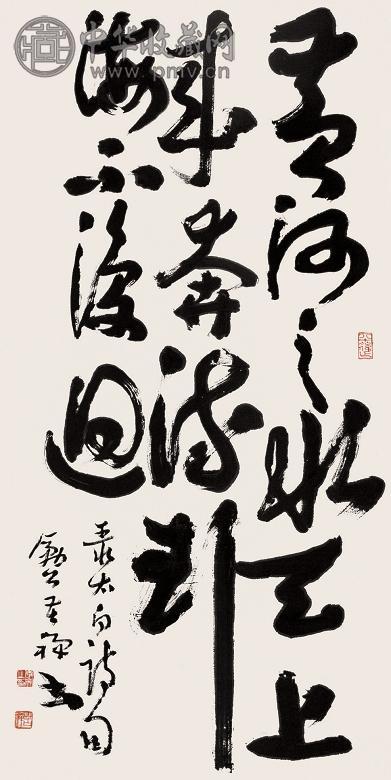 中华收藏网
www.pmv.cn
黄河之水天上
来奔流到
海不復迴
录太白诗句